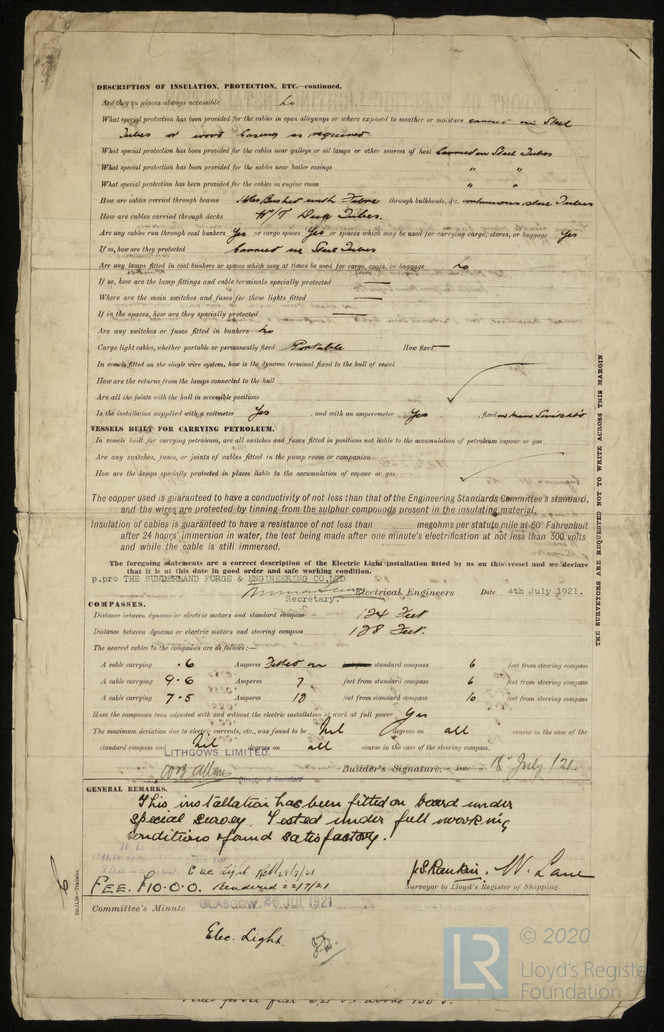 DESCRIPTION OF INSULATION, PROTECTION, ETC.—continued.
Are they in places always accessible
What special protection has been provided for the cables in open alleyways or where exposed to weather or moisture carried in Steel
Tubes or wood Casing as required
What special protection has been provided for the cables near galleys or oil lamps or other sources of heat Carried in Steel Tubes
What special protection has been provided for the cables near boiler casings " "
What special protection has been provided for the cables in engine room " "
How are cables carried through beams Holes Bushed with Fibre through bulkheads, &c. continuous steel Tubes
How are cables carried through decks W/T Deck Tubes.
Are any cables run through coal bunkers Yes or cargo spaces Yes or spaces which may be used for carrying cargo, stores, or baggage Yes
If so, how are they protected Carried in Steel Tubes
Are any lamps fitted in coal bunkers or spaces which may at times be used for cargo, coals, or baggage No
If so, how are the lamp fittings and cable terminals specially protected
Where are the main switches and fuses for these lights fitted
If in the spaces, how are they specially protected
Are any switches or fuses fitted in bunkers No
Cargo light cables, whether portable or permanently fixed Portable How fixed
In vessels fitted on the single wire system, how is the dynamo terminal fixed to the hull of vessel
How are the returns from the lamps connected to the hull
Are all the joints with the hull in accessible positions
Is the installation supplied with a voltmeter Yes , and with an amperemeter Yes , fixed on main Switchb'd
VESSELS BUILT FOR CARRYING PETROLEUM.
In vessels built for carrying petroleum, are all switches and fuses fitted in positions not liable to the accumulation of petroleum vapour or gas
Are any switches, fuses, or joints of cables fitted in the pump room or companion
How are the lamps specially protected in places liable to the accumulation of vapour or gas
The copper used is guaranteed to have a conductivity of not less than that of the Engineering Standards Committee's standard,
and the wires are protected by tinning from the sulphur compounds present in the insulating material.
Insulation of cables is guaranteed to have a resistance of not less than megohms per statute mile at 60° Fahrenheit
after 24 hours' immersion in water, the test being made after one minute's electrification at not less than 500 volts
and while the cable is still immersed.
The foregoing statements are a correct description of the Electric Light installation fitted by us on this vessel and we declare
that it is at this date in good order and safe working condition.
p.pro THE SUNDERLAND FORGE & ENGINEERING CO.LTD
Electrical Engineers Date 4th July 1921.
Secretary.
COMPASSES.
Distance between dynamo or electric motors and standard compass 124 Feet
Distance between dynamo or electric motors and steering compass 128 Feet.
The nearest cables to the compasses are as follows:—
A cable carrying .6 Amperes Fitted on standard compass 6 feet from steering compass
A cable carrying 9.6 Amperes 7 feet from standard compass 6 feet from steering compass
A cable carrying 7.5 Amperes 10 feet from standard compass 10 feet from steering compass
Have the compasses been adjusted with and without the electric installation at work at full power Yes
The maximum deviation due to electric currents, etc., was found to be Nil degrees on all course in the case of the
standard compass and Nil degrees on all course in the case of the steering compass.
LITHGOWS LIMITED.
Builder's Signature. Date 18 July /21.
GENERAL REMARKS.
This installation has been fitted on board under
special survey. Tested under full working
conditions & found satisfactory.
Elec Light
FEE. £10.0.0. Rendered 22/7/21
J.S. Rankin. W. Lane
Surveyor to Lloyd's Register of Shipping.
Committee's Minute GLASGOW 26 JUL 1921
Elec. Light.
THE SURVEYORS ARE REQUESTED NOT TO WRITE ACROSS THIS MARGIN
LR
© 2020
Lloyd's Register
Foundation